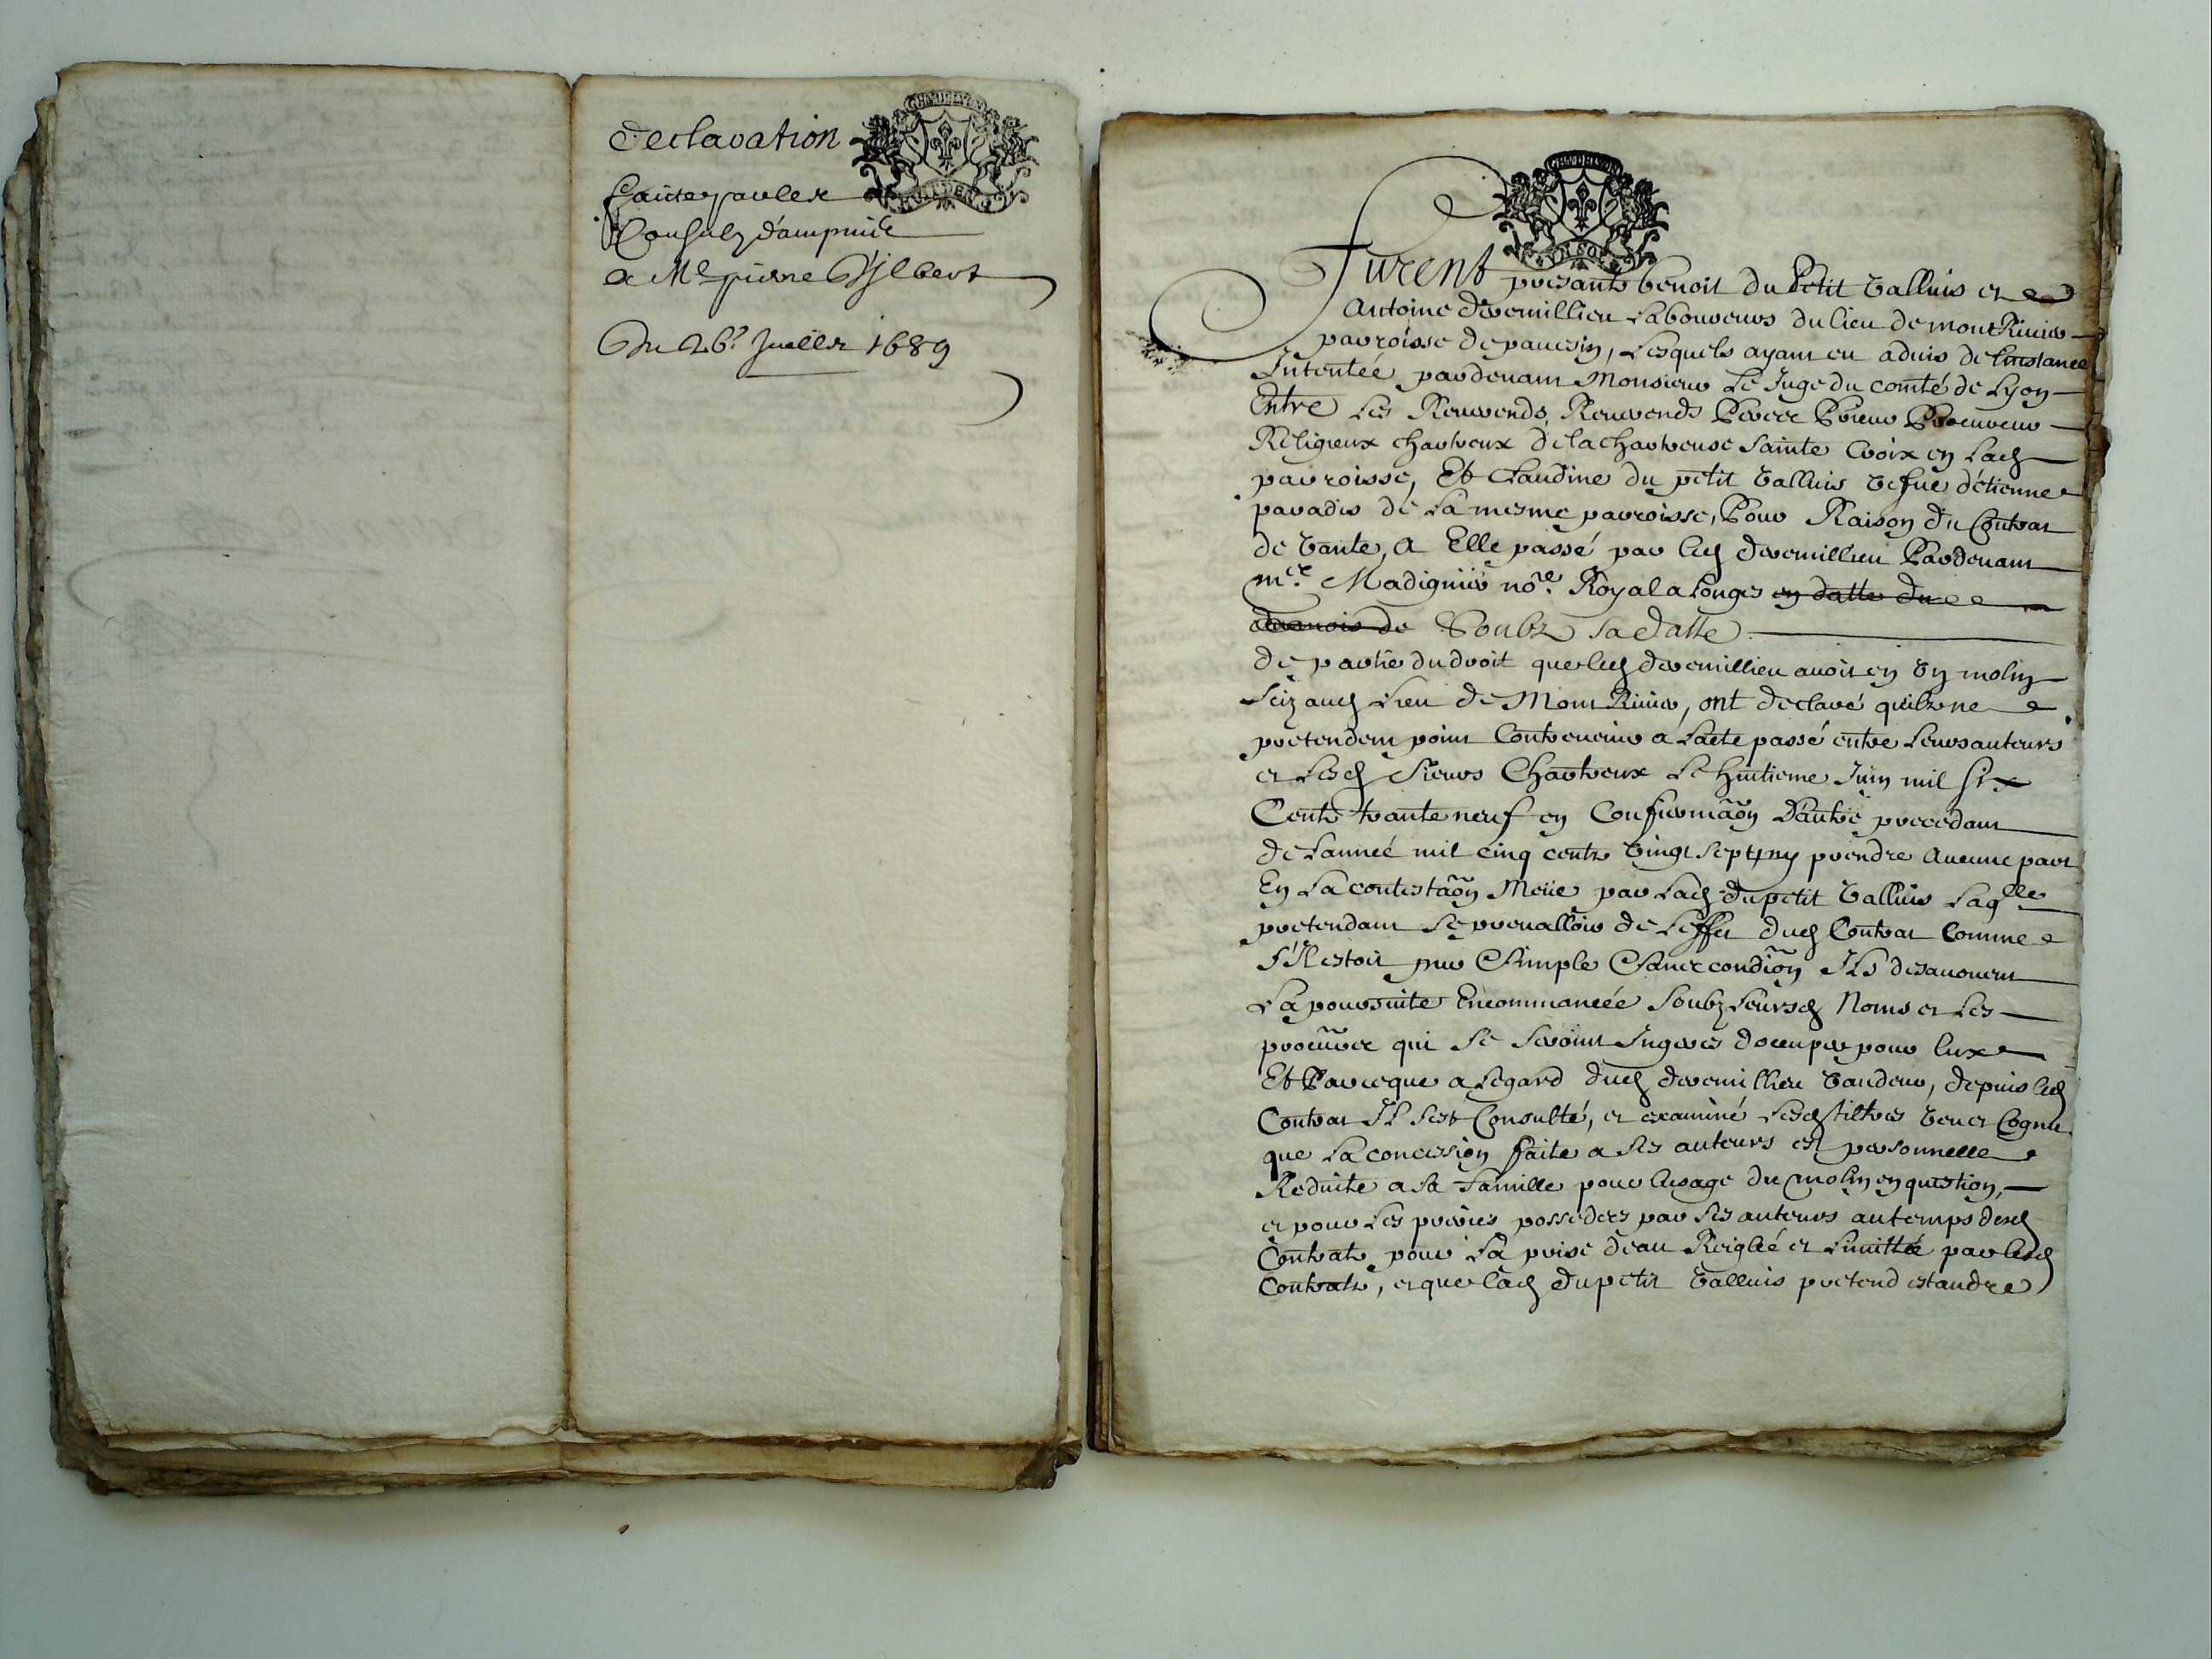 declaration
faitte par les
Consulz dampuis
a Me pierre Gilbert
Du 26e Juillet 1689
Furent presants benoit du Petit Valluis et
Antoine Devernillieu Laboureurs du lieu de mont Riuier
parroisse de pauesin, Lesquels ayant eu aduis de Linstance
Intentéé pardeuant Monsieur Le Juge du comté de Lyon
Entre Les Reuerends, Reuerends Peres Prieur Procureur
Religieux chartreux de la chartreuse Sainte Croix en Lad
parroisse, Et Claudine du petit Valluis Vefue d'étienne
paradis de La mesme parroisse, Pour Raison du Contrat
de Vante, A Elle passé par led Devernillieu Pardeuant
me Madignier nore Royal a Longes en datte du
Soubz sa datte
de partie du droit que led devernillieu auoit en Vn molin
Seiz aud Lieu de Mont Riuier, ont declaré quilz ne
pretendent point Contreuenir a Lacte passé entre Leurs auteurs
et Lesd Sieurs Chartreux Le huitieme Juin mil Six
Cents trante neuf en Confirmaõn D'autre precedant
de Lanneé mil cinq cents Vingt Sept ny prendre Aucune part
En La contestaõn Meüe par Lad du petit Valluis Laqlle
pretendant Se preualloir de Leffet dud Contrat Comme
S'Il estoit pur Simple Sans condiõn Ils desauouent
La poursuite Encommancéé Soubz Leursd Noms et Les
procũres qui Se Seroint Ingeres doccuper pour lux
Et Parceque a Legard dud devernillieu Vandeur, depuis led
Contrat Il Sest Consulté, et examiné Lesd tiltres Veu et Cognu
que La concession faite a Ses auteurs est personnelle
Reduite a Sa Famille pour lusage du molin en question,
et pour Les preries possedees par Ses auteurs au temps desd
Contrats pour La prise d'eau Reigléé et Limittée par lesd
Contrats, et que Lad du petit Valluis pretend estandre